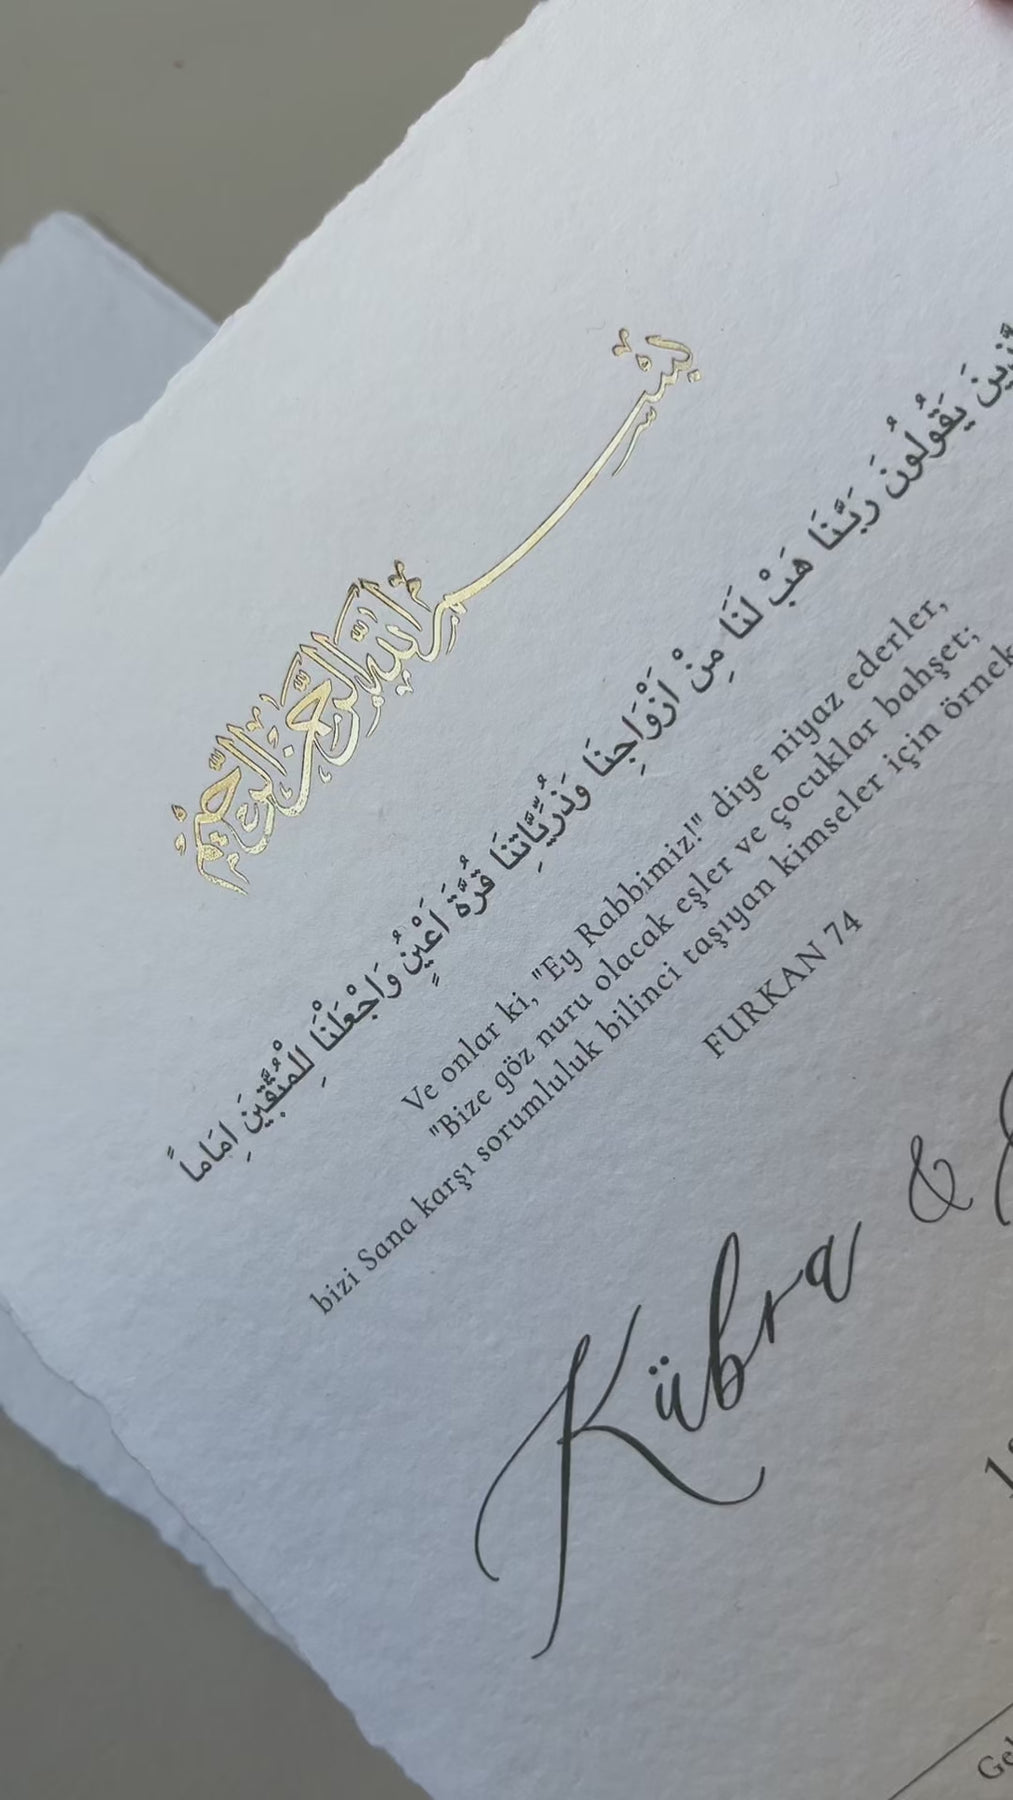 بِسْمِ اللهِ الرَّحْمٰنِ الرَّحِيْمِ
يَقُولُونَ رَبَّنَا هَبْ لَنَا مِنْ اَزْوَاجِنَا وَذُرِّيَّاتِنَا قُرَّةَ اَعْيُنٍ وَاجْعَلْنَا لِلْمُتَّقِينَ اِمَاماً
Ve onlar ki, "Ey Rabbimiz!" diye niyaz ederler,
"Bize göz nuru olacak eşler ve çocuklar bahşet;
bizi Sana karşı sorumluluk bilinci taşıyan kimseler için örnek
FURKAN 74
Kübra &